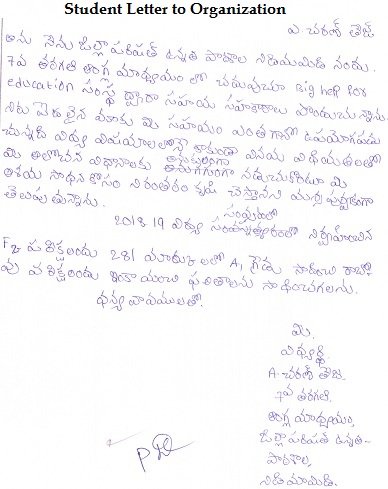 Student Letter to Organization
ఎ. చరణ్ తేజ్
అను నేను జిల్లా పరిషత్ ఉన్నత పాఠశాల నిడిమామిడి నందు
7వ తరగతి ఆంగ్ల మాధ్యమం లో చదువుచూ Big help for
education సంస్థ ద్వారా సహాయ సహకారాలు పొందుచున్నాను.
మీ సహాయం ఎంతగానో ఉపయోగపడు
చున్నది విద్యా విషయాలలోనే కాకుండా వినయ విధేయతలతో
మీ ఆలోచన విధానాలకు అనుకూలంగా నడుచుకుంటూ మీ
ఆశయ సాధన కోసం నిరంతరం కృషి చేస్తానని
తెలుపుతున్నాను.
2018-19 విద్యా సంవత్సరంలో నిర్వహించిన
F2 పరీక్షలందు 281 మార్కులలో A1 గ్రేడు సాధించి రాబో
వు పరీక్షలందు ఇలాంటి ఫలితాలను సాధించగలను.
ధన్యవాదములతో.
మీ
విద్యార్థి
A. చరణ్ తేజ.
7వ తరగతి.
ఆంగ్ల మాధ్యమం,
జిల్లా పరిషత్ ఉన్నత
పాఠశాల,
నిడిమామిడి.